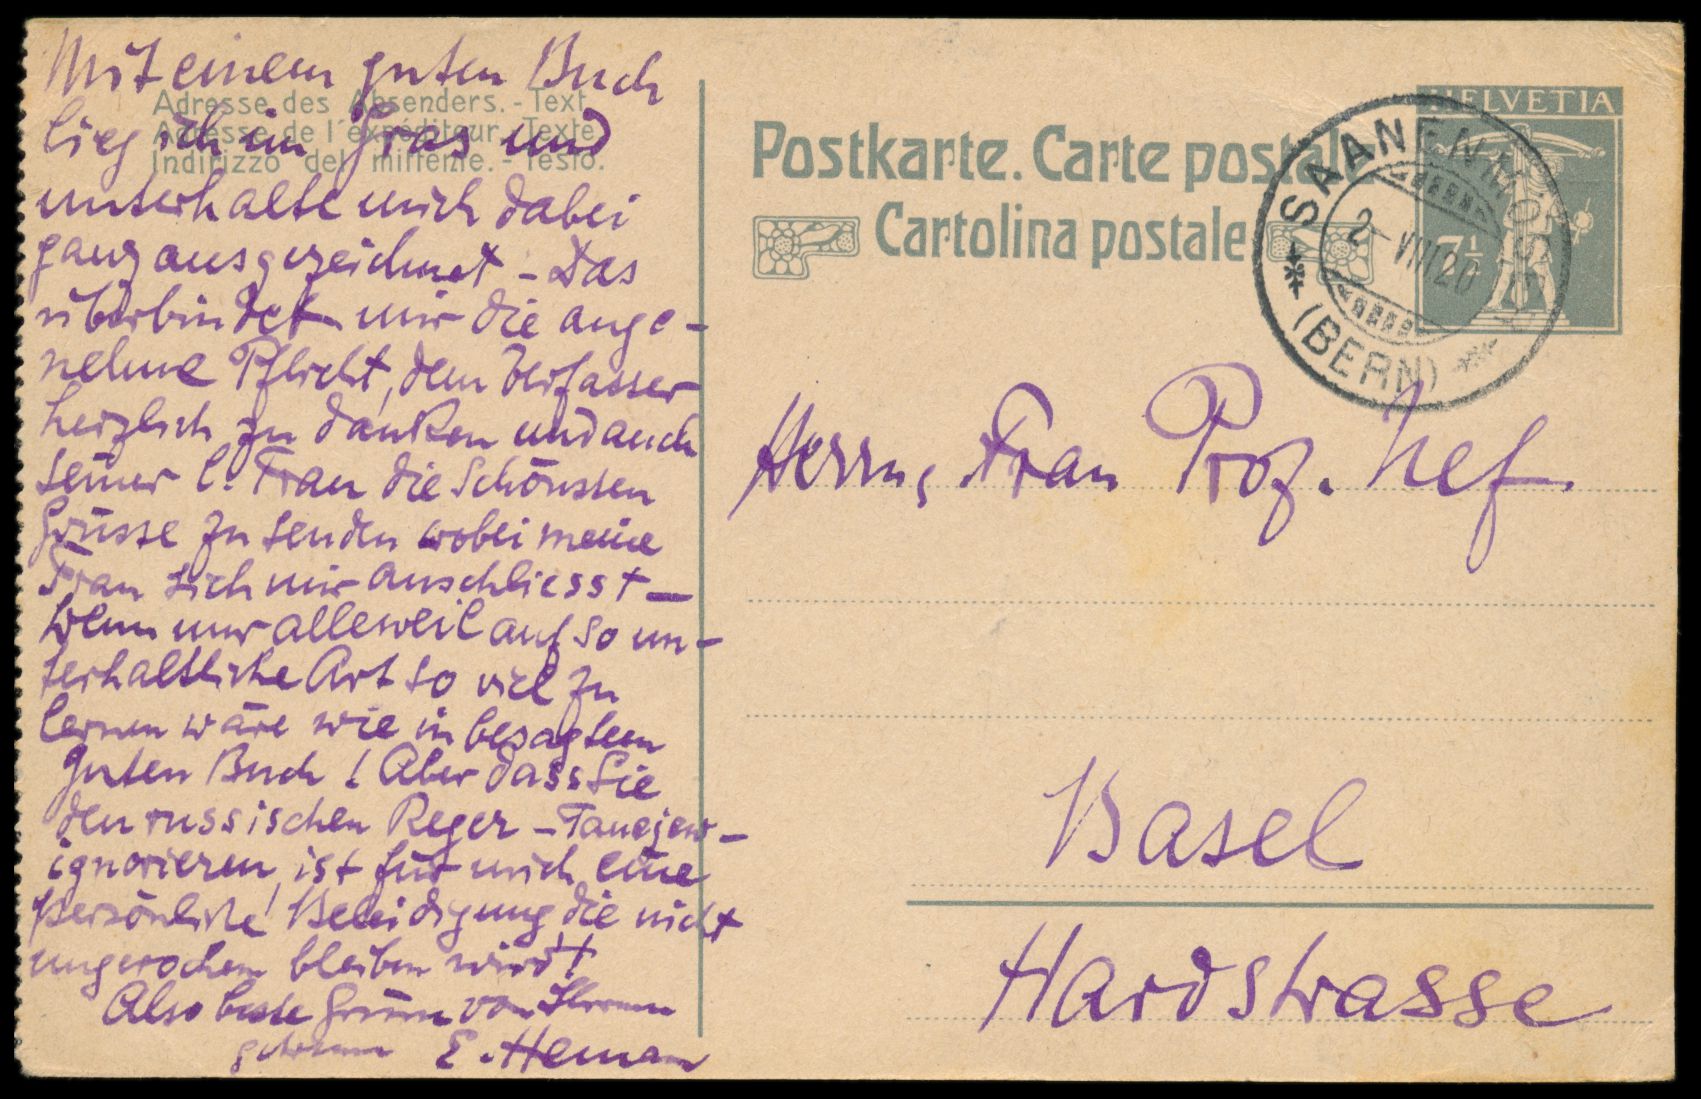 Mit einem guten Buch
lieg ich im Gras und
unterhalte mich dabei
ganz ausgezeichnet - Das
überbindet mir die ange-
nehme Pflicht, dem Verfasser
herzlich zu danken und auch
seiner l. Frau die schönsten
Grüsse zu senden wobei meine
Frau sich mir anschliesst -
Wenn nur alleweil auf so un-
terhaltliche Art so viel zu
lernen wäre wie in besagtem
guten Buch! Aber dass Sie
den russischen Reger - Tanejew -
ignorieren, ist für mich eine
persönliche Beleidigung die nicht
ungerochen bleiben wird!
Also beste Grüsse von Ihrem
E. Heman
Adresse des Absenders. - Text.
Adresse de l'expéditeur. - Texte.
Indirizzo del mittente. - Testo.
Postkarte. Carte postale
Cartolina postale
HELVETIA
7½
SAANENMÖSER
2. VIII 20
(BERN)
Herrn, Frau Prof. Nef.
Basel
Hardstrasse